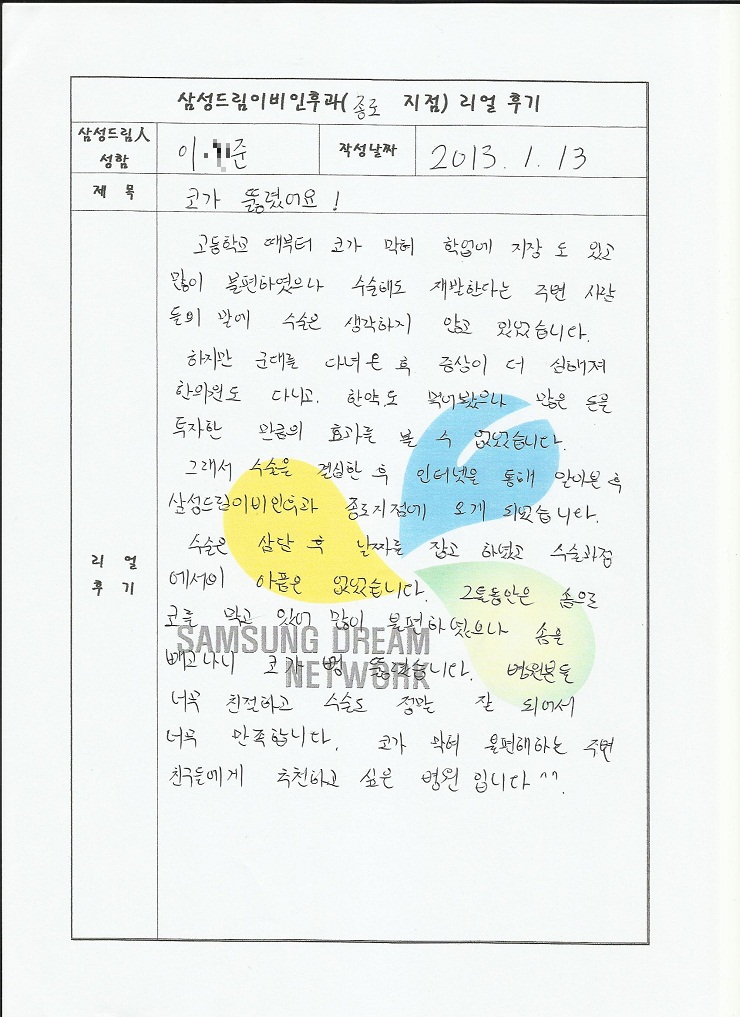 삼성드림이비인후과(종로 지점) 리얼 후기
삼성드림人 성함
이 준
작성날짜
2013. 1. 13
제 목
코가 뚫렸어요!
리 얼 후 기
고등학교 때부터 코가 막혀 학업에 지장 도 있고
많이 불편하였으나 수술해도 재발한다는 주변 사람
들의 말에 수술은 생각하지 않고 있었습니다.
하지만 군대를 다녀온 후 증상이 더 심해져
한의원도 다니고. 한약도 먹어봤으나 많은 돈을
투자한 만큼의 효과를 볼 수 없었습니다.
그래서 수술을 결심한 후 인터넷을 통해 알아본 후
삼성드림이비인후과 종로지점에 오게 되었습니다.
수술은 상담 후 날짜를 잡고 하였고 수술과정
에서의 아픔은 없었습니다. 그틀동안은 솜으로
코를 막고 있어 많이 불편하였으나 솜을
빼고나니 코가 뻥 뚫렸습니다. 병원분들
너무 친절하고 수술도 정말 잘 되어서
너무 만족합니다. 코가 막혀 불편해하는 주변
친구들에게 추천하고 싶은 병원 입니다 ^^.
SAMSUNG DREAM
NETWORK